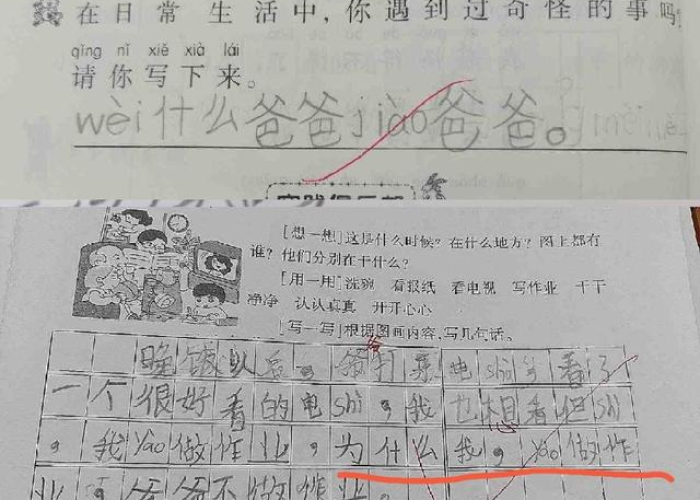 在日常生活中，你遇到过奇怪的事吗？
qǐng nǐ xiě xià lái
请你写下来。
wèi什么爸爸jiào爸爸。
[想一想]这是什么时候？在什么地方？图上都有
谁？他们分别在干什么？
[用一用]洗碗 看报纸 看电视 写作业 干干
净净 认认真真 开开心心
[写一写]根据图画内容，写几句话。
晚饭以后，爸爸打开电shì，看了
一个很好看的电shì，我也想看但shì
，我yào做作业，为什么我，yào做作
业，爸爸不做作业。